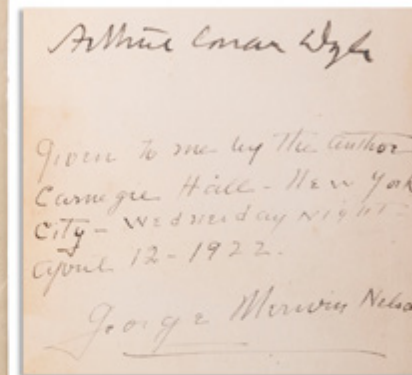 Arthur Conan Doyle
Given to me by the author
Carnegie Hall - New York
City - Wednesday Night -
April 12 - 1922.
George Merwin Nelson